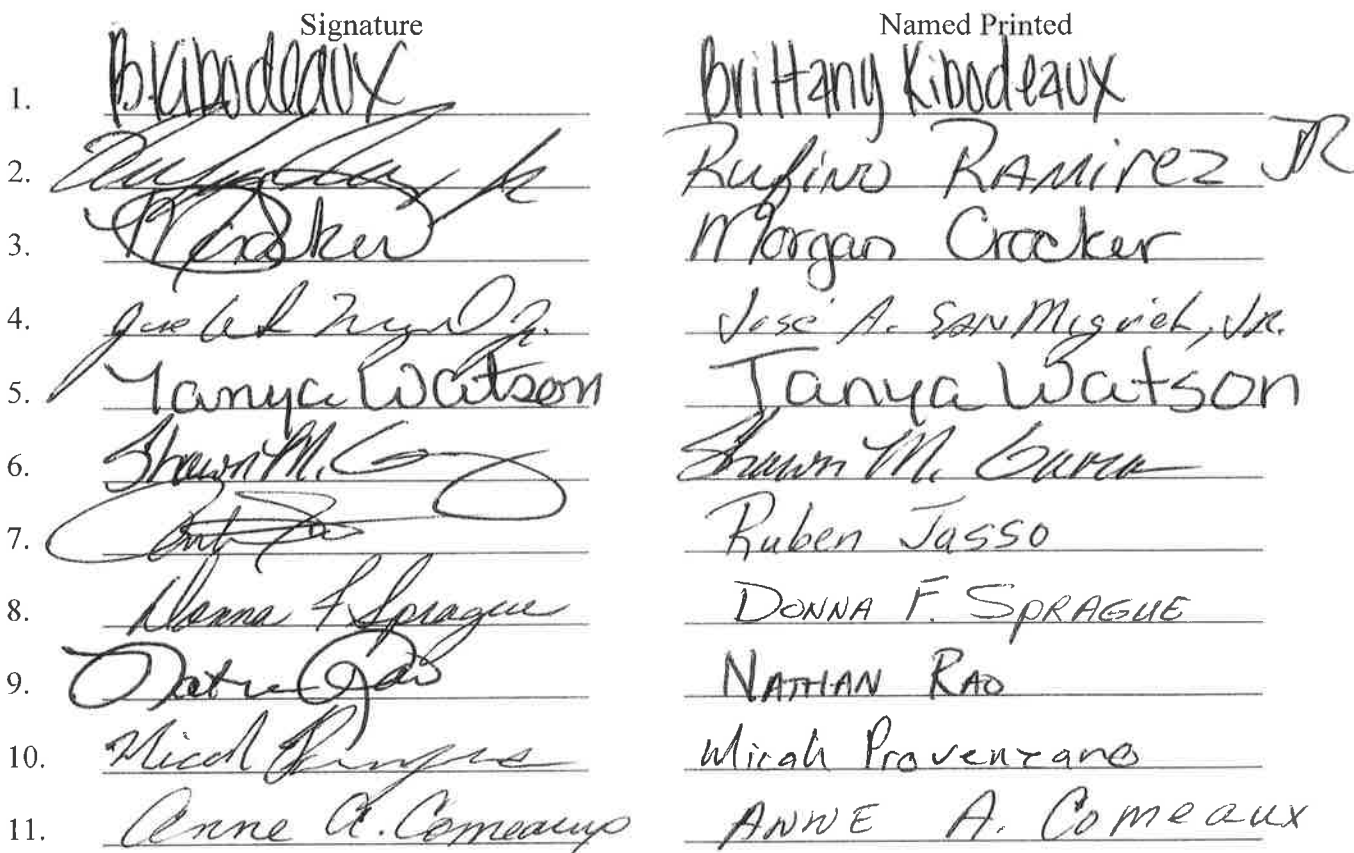 Signature Named Printed
1. BKibodeaux Brittany Kibodeaux
2. Rufino Ramirez JR
3. MCrocker Morgan Crocker
4. Jose A. San Miguel, Jr.
5. Tanya Watson Tanya Watson
6. Shawn M. G Shawn M.
7. Ruben Jasso
8. Donna F Sprague DONNA F. SPRAGUE
9. Nathan Rao NATHAN RAO
10. Micah Micah Provenzano
11. Anne A. Comeaux ANNE A. Comeaux